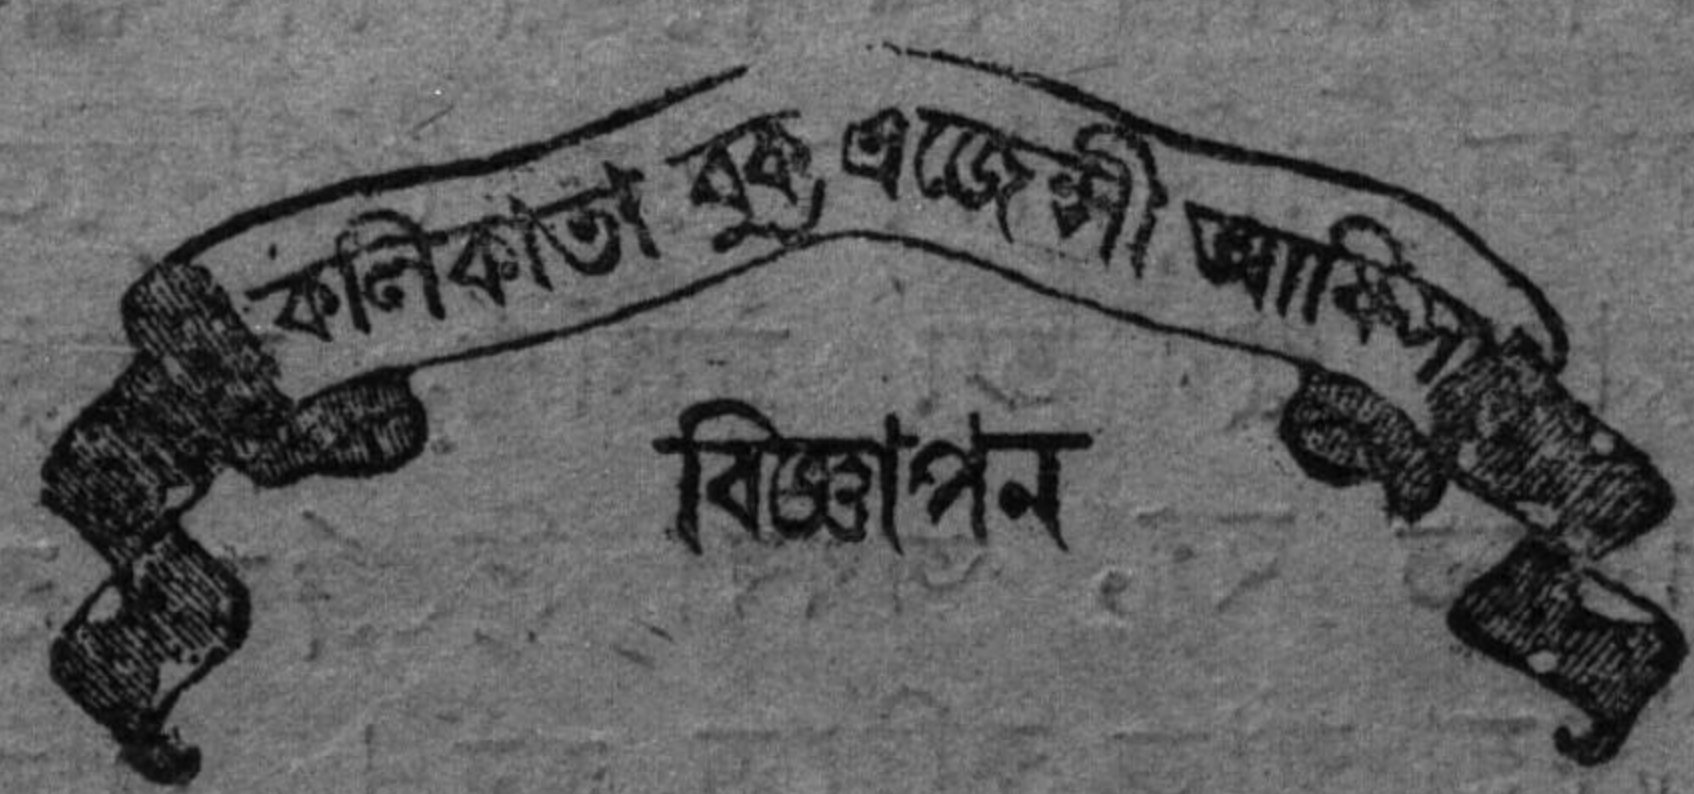 কলিকাতা বুক্ এজেন্সী আফিস
বিজ্ঞাপন